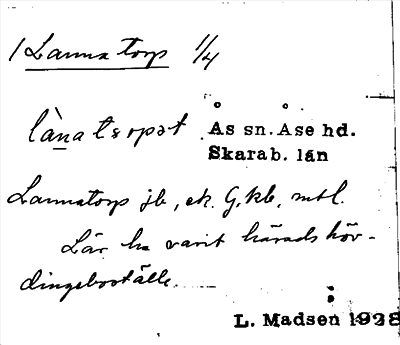 1 Lanna torp 1/4
lànatɷrpət Ås sn. Åse hd.
Skarab. län
Lannatorp jb, ek. G, kb, mtl.
Lär ha varit härads höv-
dingeboställe.
L. Madsen 1928